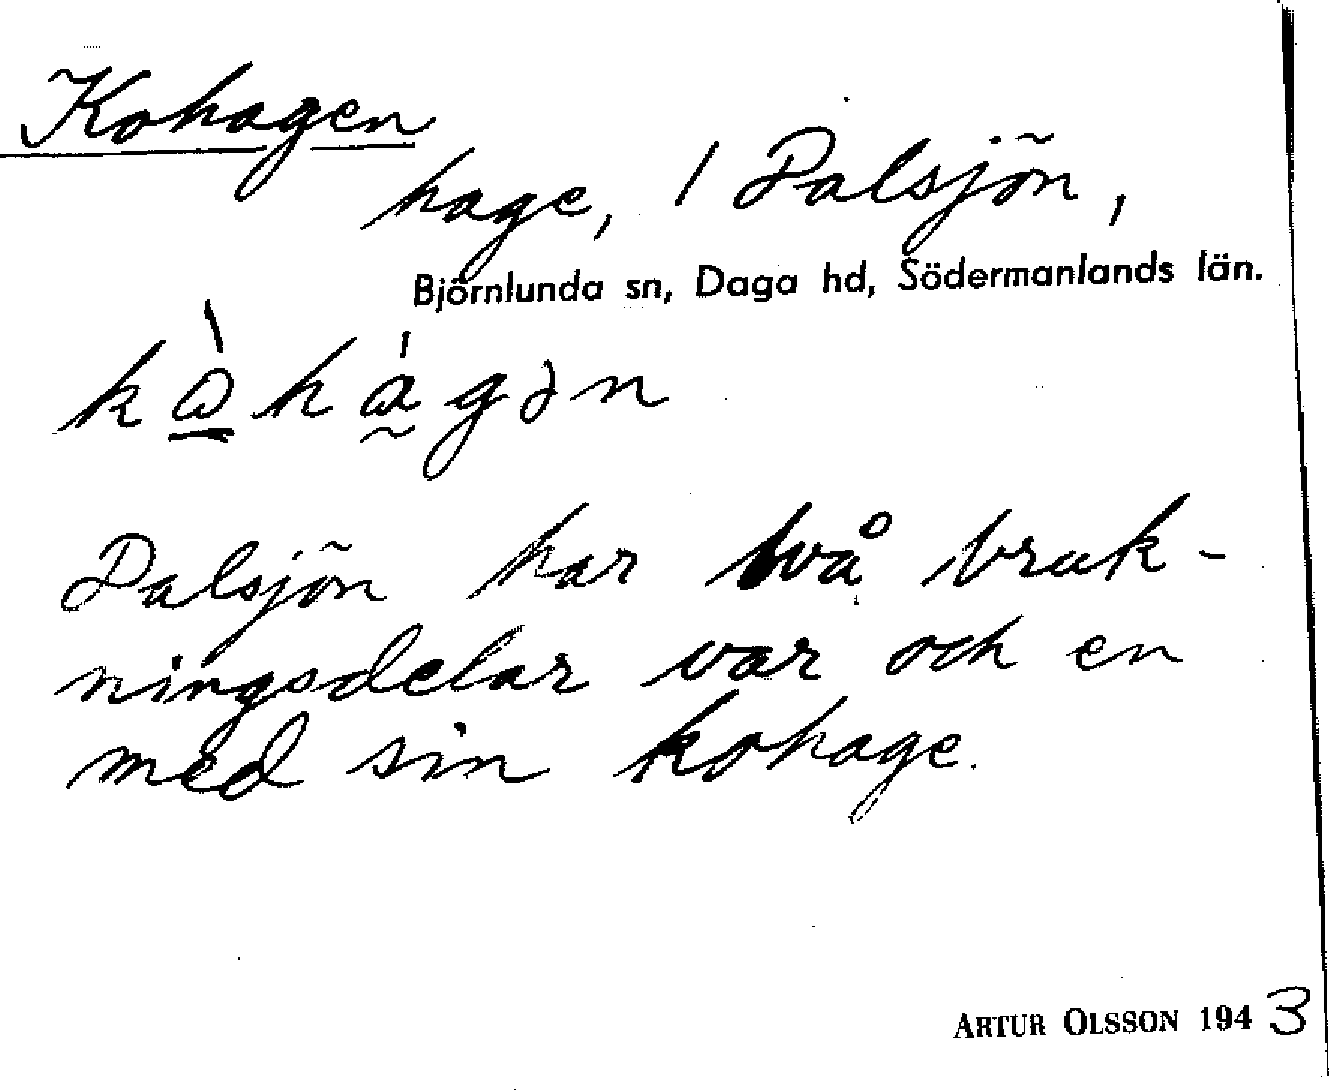 Kohagen
hage, 1 Dalsjön,
Björnlunda sn, Daga hd, Södermanlands län.
Dalsjön har två bruk-
ningsdelar var och en
med sin kohage.
ARTUR OLSSON 1943